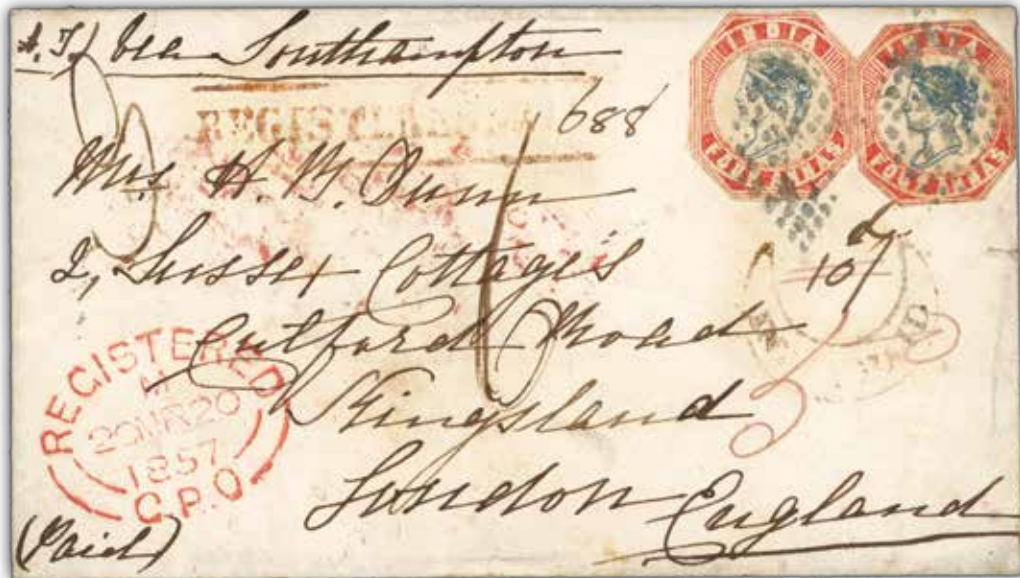 via Southampton
INDIA
FOUR ANNAS
INDIA
FOUR ANNAS
688
Mrs H. M. Dunn
2, Sussex Cottages
10/
Culford Road
Kingsland
London
England
REGISTERED
20 MR 20
1857
G.P.O.
(Paid)